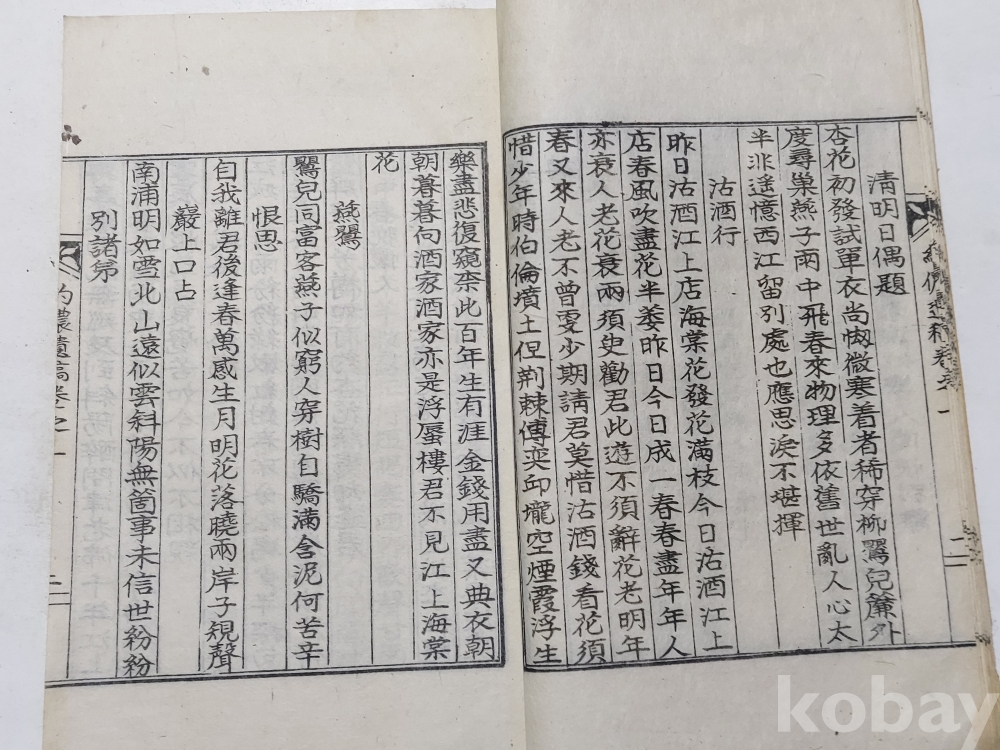 清明日偶題
杏花初發試單衣尙㤼微寒着者稀穿柳鶯兒簾外
度尋巢燕子雨中飛春來物理多依舊世亂人心太
半非遙憶西江留別處也應思淚不堪揮
沽酒行
昨日沽酒江上店海棠花發花滿枝今日沽酒江上
店春風吹盡花半萎昨日今日成一春春盡年年人
亦衰人老花衰兩須臾勸君此遊不須辭花老明年
春又來人老不曾雯少期請君莫惜沽酒錢看花須
惜少年時伯倫墳土但荆棘傅奕邱壠空煙霞浮生
樂盡悲復窺柰此百年生有涯金錢用盡又典衣朝
朝暮暮向酒家酒家亦是浮蜃樓君不見江上海棠
花
燕鶯
鶯兒同富客燕子似窮人穿樹自驕滿含泥何苦辛
恨思
自我離君後逢春萬感生月明花落曉兩岸子規聲
巖上口占
南浦明如雪北山遠似雲斜陽無箇事未信世紛紛
別諸弟
農遺稿卷之一
二
kobay